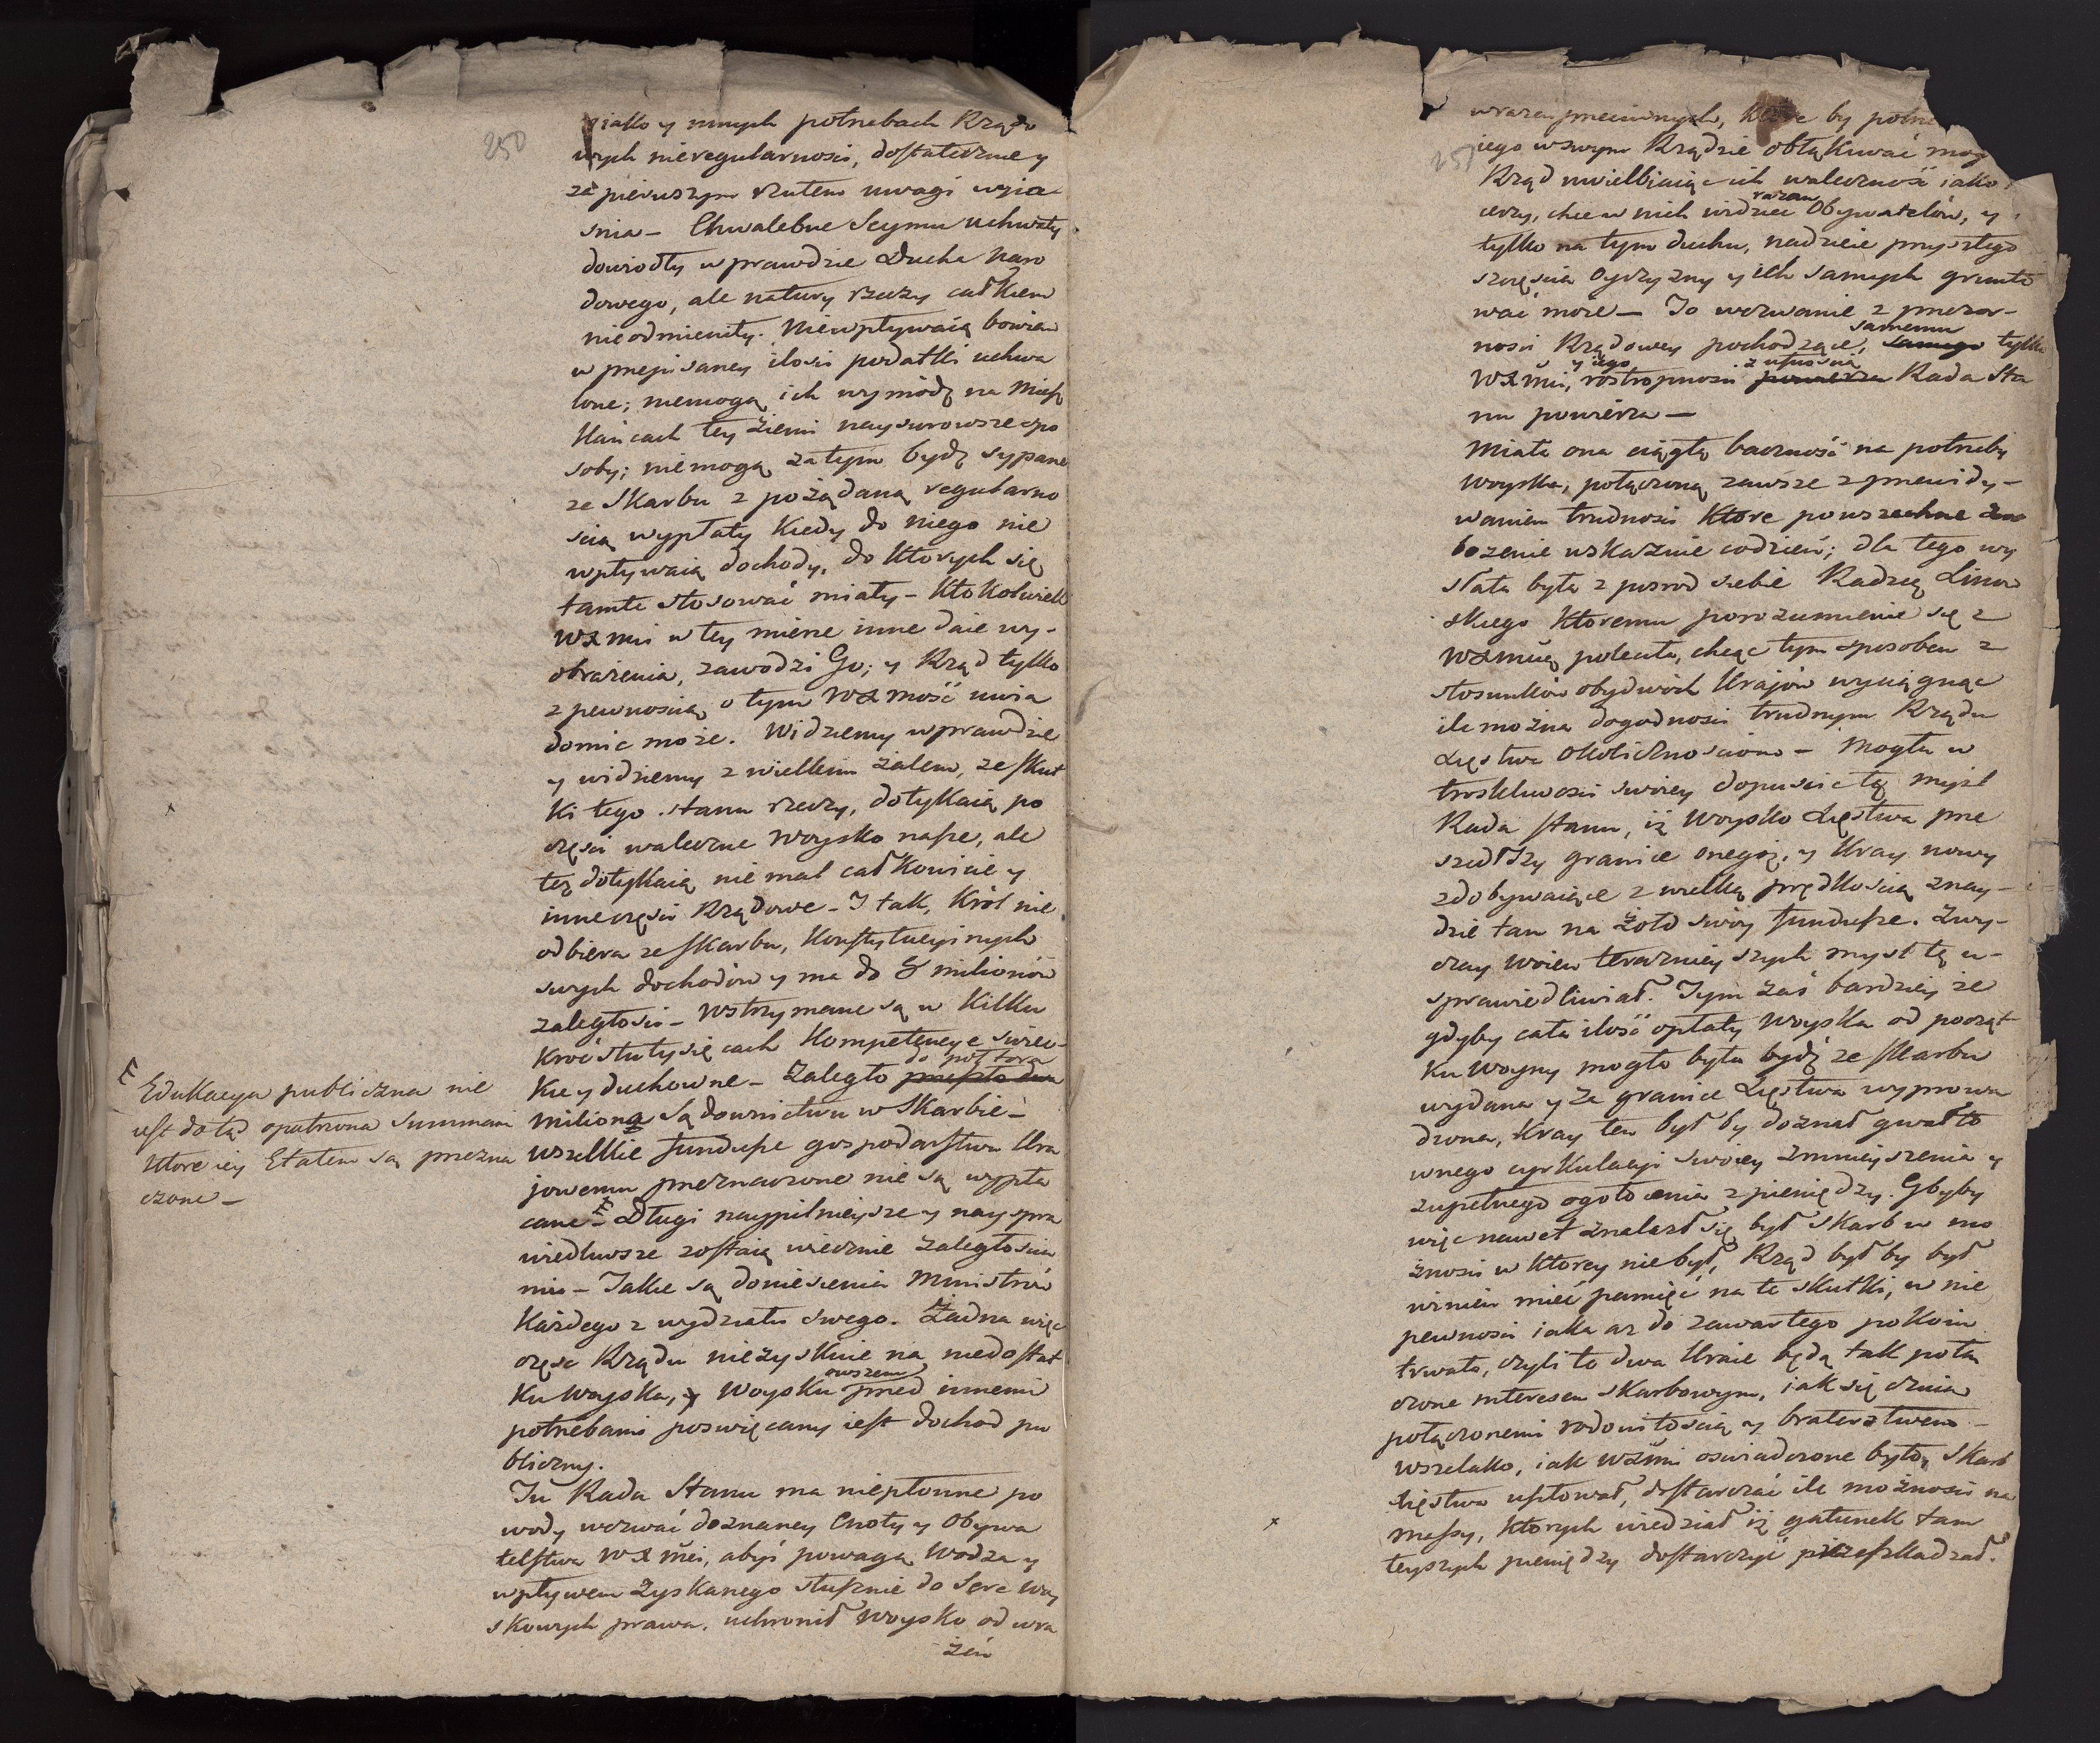 250
iako y innych potrzebach Rządo
wych nieregularnosci, dostatecznie y
za pierwszym rzutem uwagi wyia
snia – Chwalebne Seymu uchwały
dowiodły w prawdzie Ducha Naro
dowego, ale natury rzeczy całkiem
nieodmieniły. Niewpływaią bowiem
w przepisaney ilosci podatki uchwa
lone; niemogą ich wymódz na Miesz
kańcach tey Ziemi naysurowsze spo
soby; niemogą zatym bydź sypane
ze Skarbu z pożądaną regularno
scią wypłaty kiedy do niego nie
wpływaią dochody, do ktorych się
tamte stosować miały – Ktokolwiek
WXMci w tey mierze inne daie wy-
obrażenia, zawodzi Go; y Rząd tylko
z pewnoscią o tym WXMość uwia
domic może. Widziemy w prawdzie
y widziemy z wielkim żalem, ze skut
ki tego stanu rzeczy, dotykaią po
częsci waleczne Woysko nasze, ale
też dotykaią nie mal całkowicie y
inne części Rządowe – I tak, Król nie
odbiera ze skarbu, konstytucyinych
swych dochodów y ma do 8 milionów
zaległosci – Wstrzymane są w kilku
kroć stutysięcach kompetencye swiec-
do pottora
kie y duchowne – Zaległo przeszło dwa
miliona Sądownictwu w Skarbie –
wszelkie fundusze gospodarstwu kra
jowemu przeznaczone nie są wypła
cane – E Długi naypilnieysze y nayspra
wiedliwsze zostaią wiecznie zaległoscia
mi – Takie są doniesienia Ministrów
każdego z wydziału swego. Żadna więc
częsc Rządu niezyskuie na niedostat
owszem
ku woyska, y Woysku przed innemi
potrzebami poswięcany iest dochod pu
bliczny.
Tu Rada Stanu ma niepłonne po
wody wezwać doznaney Cnoty y Obywa
telstwa WXMci, abyś powagą Wodza y
wpływem zyskanego słusznie do Serc Woy
skowych prawa, uchronił Woysko od wra
żeń
E
Edukacya publiczna nie
iest dotąd opatrzona Summami
ktore iey Etatem są przezna
czone –
251
wrażeń przeciwnych, które by potrze
iego wswym Rządzie obłąkiwać mog
Rząd uwielbiaiąc ich waleczność iako
razem
cerzy, chce w nich widziec Obywatelów, y
tylko na tym duchu, nadzieie przyszłego
szczęscia Oyczyzny y ich samych grunto
wać może – To wezwanie z przezor-
samemu
nosci Rządowey pochodzące, samego tylko
y iego z ufnoscią
WXMci, rostropnosci powierza Rada Sta
nu powierza –
Miała ona ciągłą baczność na potrzeby
woyska, połączoną zawsze z przewidy-
waniem trudnosci ktore powszechne zu
bozenie wskazuie codzień; dla tego wy
słała była z posrod siebie Radzcę Linow
skiego ktoremu porozumienie się z
WXMcią poleciła, chcąc tym sposobem z
stosunków obydwóch krajów wyciągnąc
ile można dogodnosci trudnym Rządu
Xięstwa okolicznosciom – Mogła w
troskliwosci swoiey dopuscic tę mysl
Rada stanu, iż Woysko Xięstwa prze
szedłszy granice onegoż, y kray nowy
zdobywaiące z wielką prędkoscią znay-
dzie tam na żołd swóy fundusze. Zwy-
czay woien teraznieyszych mysl tę u-
sprawiedliwiał. Tym zaś bardziey że
gdyby cała ilość opłaty woyska od począt-
ku woyny mogła była bydź ze skarbu
wydana y za granice Xięstwa wyprowa
dzona, kray ten był by doznał gwałto
wnego cyrkulacyi swoiey zmnieyszenia y
zupełnego ogołocenia z pieniędzy. Gdyby
więc nawet znalazł się był Skarb w mo
żnosci w ktorey nie był, Rząd był by był
winien mieć pamięć na te skutki, w nie
pewnosci iaka aż do zawartego pokoiu
trwała, czyli to dwa kraie będą tak połą
czone interesem skarbowym, iak się czuią
połączonemi rodowitoscią y braterstwem –
wszelako, iak WXMci oswiadczone było, Skarb
Xięstwa usiłował, dostarczać ile możnosci na
massy, ktorych wiedział iż gatunek tam
teyszych pieniędzy dostarczyć przeszkadzał.